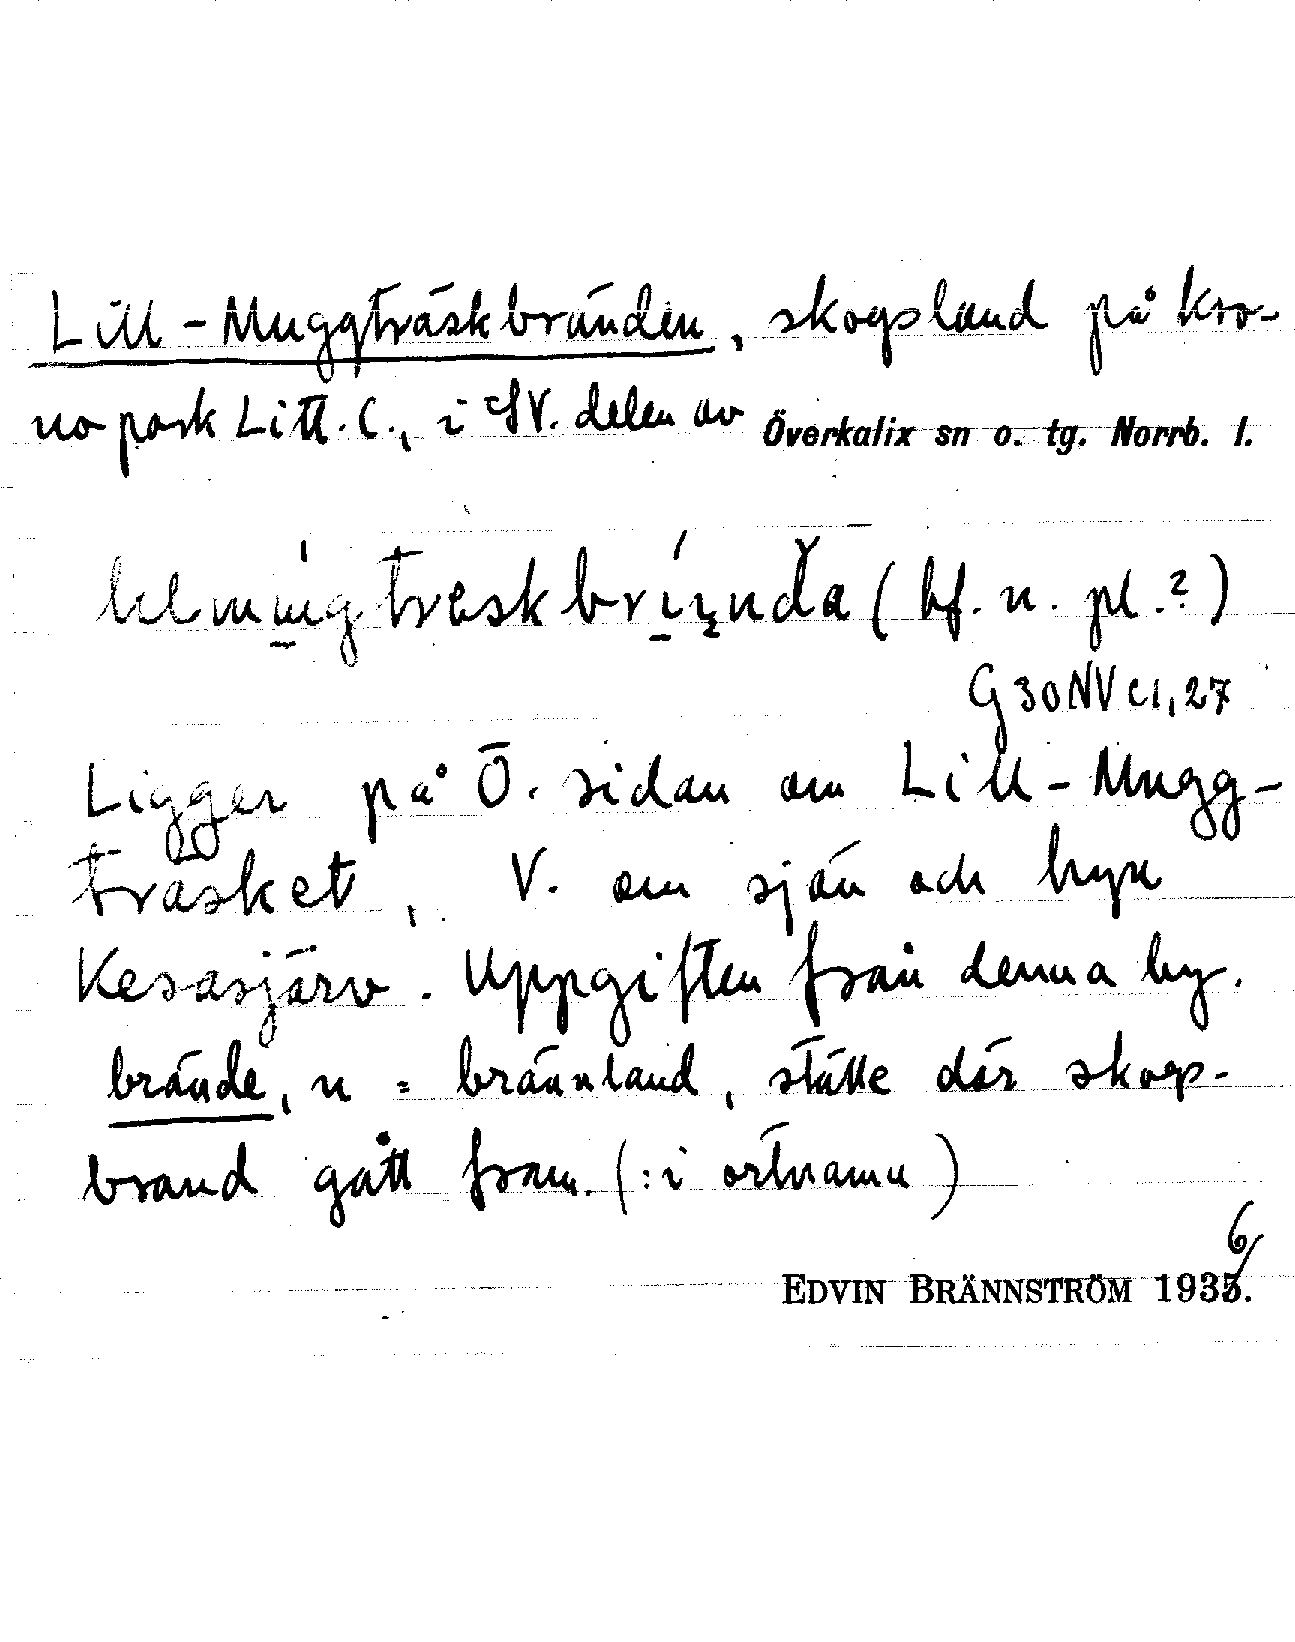 Lill-Muggträskbränden, skogsland på Kro-
nopark Litt. C., i SV. delen av Överkalix sn o. tg. Norrb. l.
(bf. n. pl.?)
G30NV c1,27
Ligger på Ö. sidan om Lill-Mugg-
träsket, V. om sjön och byn
Kesasjärv. Uppgiften från denna by.
brände, n = brännland, ställe där skogs-
brand gått fram. (: i ortnamn)
6
EDVIN BRÄNNSTRÖM 1935.